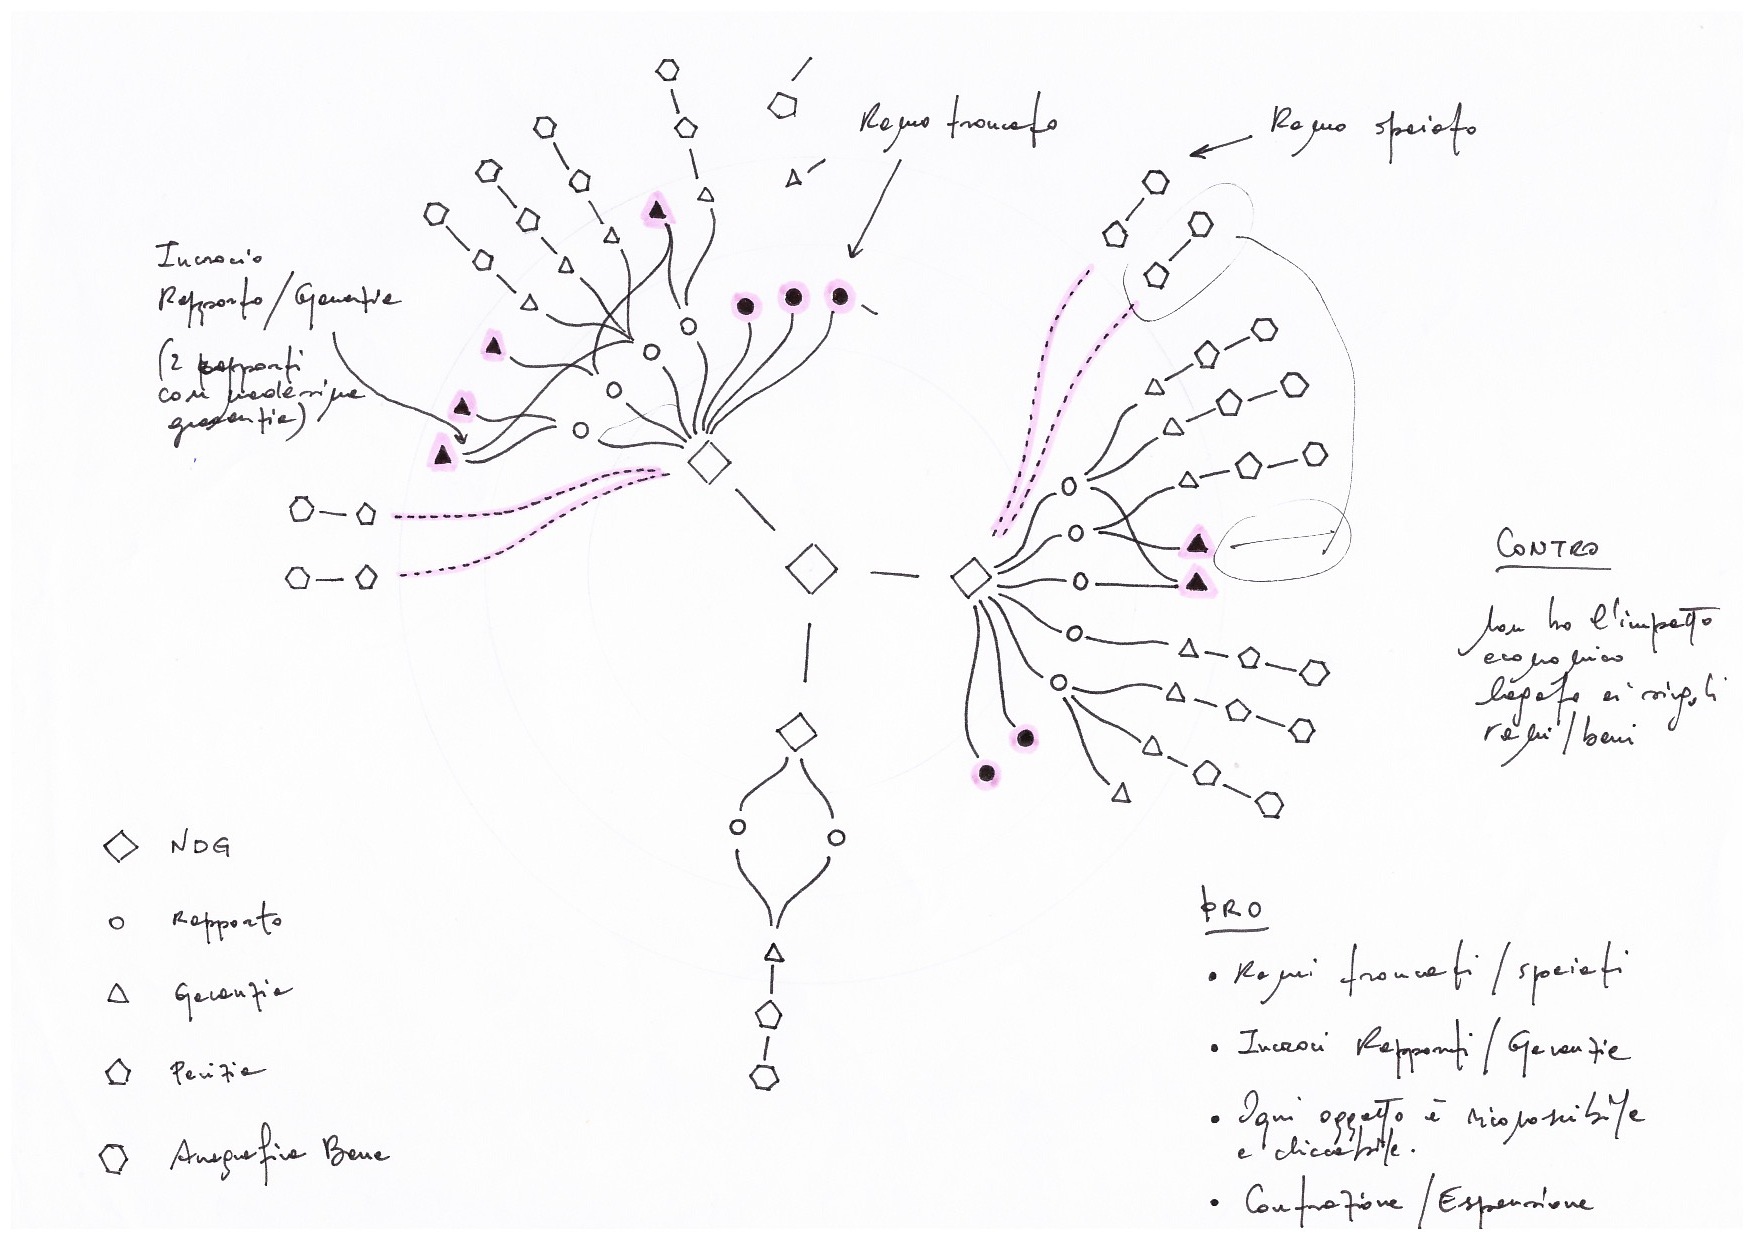 Ramo troncato
Ramo spaiato
Incrocio
Rapporto/Garanzia
(2 rapporti
con medesima
garanzia)
CONTRO
Non ho l'impatto
economico
legato ai singoli
rami/beni
NDG
Rapporto
Garanzia
Perizia
Anagrafica Bene
PRO
• Rami troncati/spaiati
• Incroci Rapporti/Garanzie
• Ogni oggetto è riconoscibile
e cliccabile.
• Contrazione/Espansione